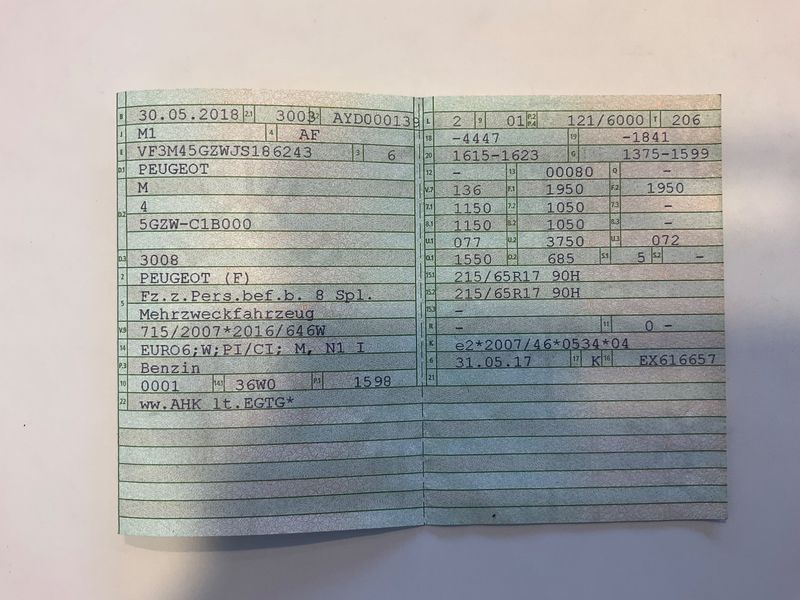 B 30.05.2018 2.1 3003 2.2 AYD000139
J M1 4 AF
E VF3M45GZWJS186243 3 6
D.1 PEUGEOT
M
4
D.2 5GZW-C1B000
D.3 3008
2 PEUGEOT (F)
5 Fz.z.Pers.bef.b. 8 Spl.
Mehrzweckfahrzeug
V.9 715/2007*2016/646W
14 EURO6;W;PI/CI; M, N1 I
P.3 Benzin
10 0001 14.1 36W0 P.1 1598
22 ww.AHK lt.EGTG*
L 2 9 01 P.2 P.4 121/6000 T 206
18 -4447 19 -1841
20 1615-1623 G 1375-1599
12 - 13 00080 Q -
V.7 136 F.1 1950 F.2 1950
7.1 1150 7.2 1050 7.3 -
8.1 1150 8.2 1050 8.3 -
U.1 077 U.2 3750 U.3 072
O.1 1550 O.2 685 S.1 5 S.2 -
15.1 215/65R17 90H
15.2 215/65R17 90H
15.3 -
R - 11 0 -
K e2*2007/46*0534*04
6 31.05.17 17 K 16 EX616657
21